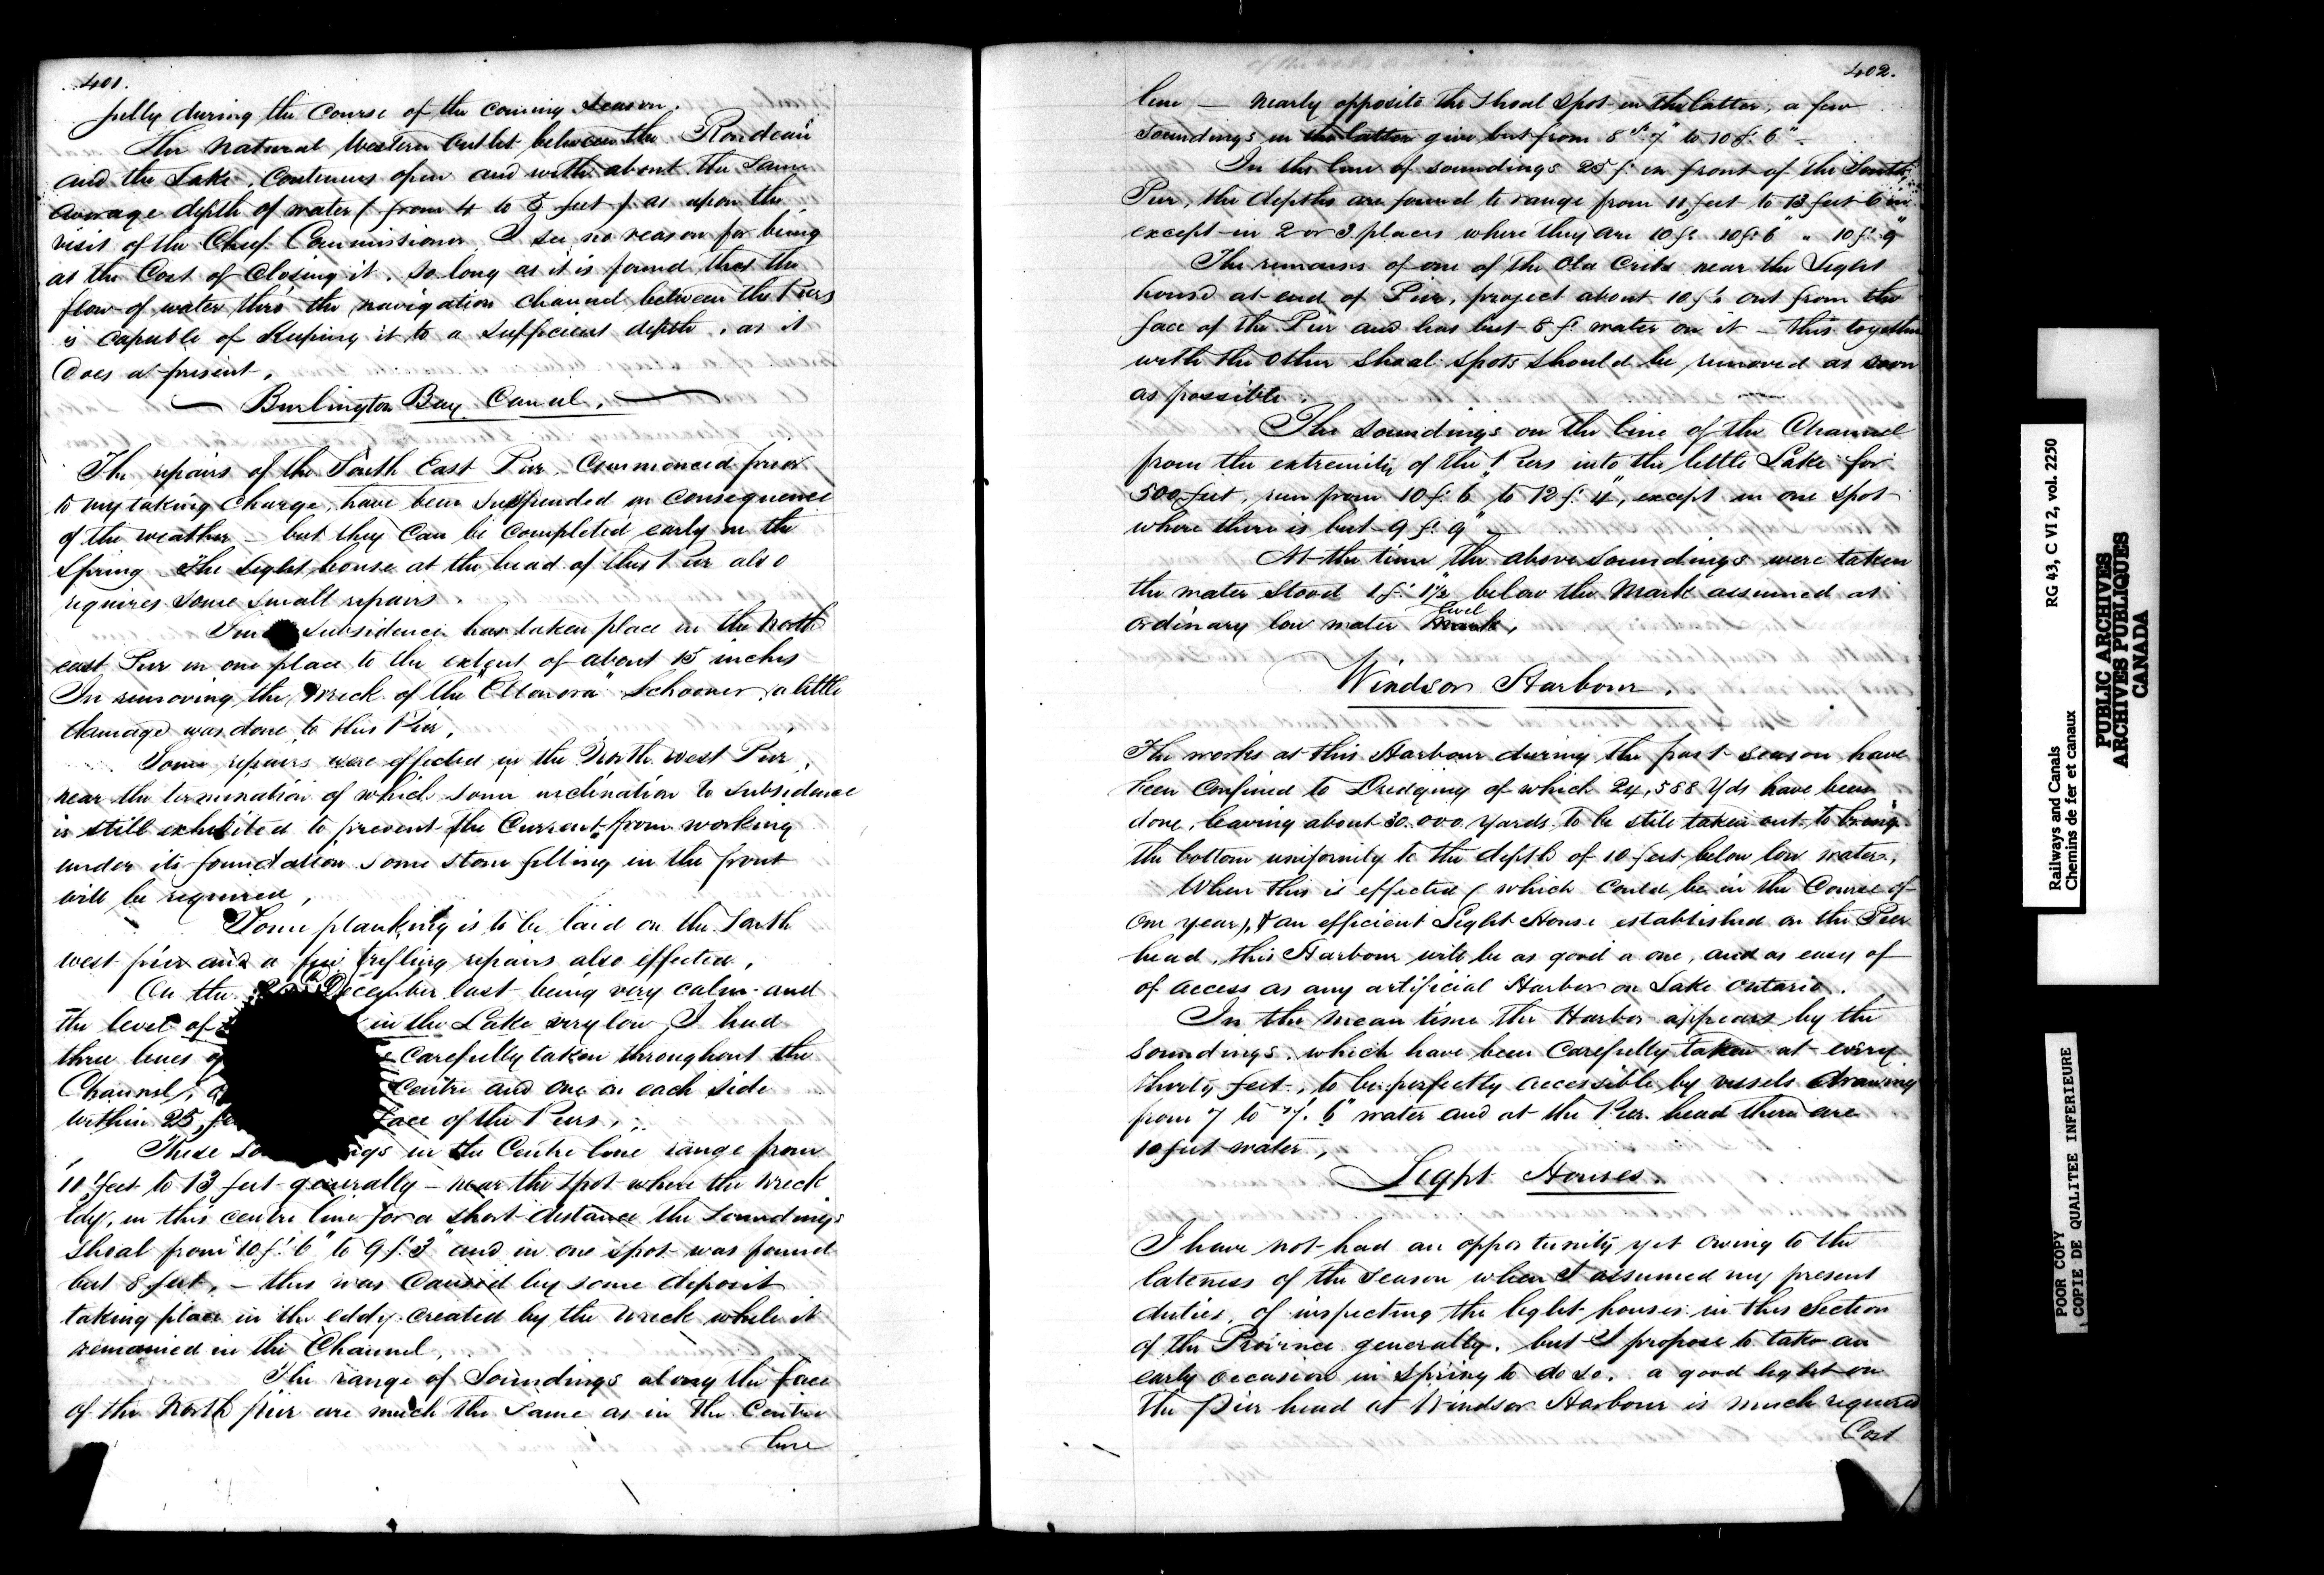 401.
fully during the Course of the coming Season.
The Natural Western Outlet between the Rondeau
and the Lake, Continues open and with about the same
average depth of water (from 4 to 5 feet) as upon the
visit of the Chief Commissioner I see no reason for being
at the Cost of Closing it, so long as it is found that the
flow of water thro' the navigation channel between the Piers
is capable of Keeping it to a sufficient depth, as it
Does at present.
Burlington Bay Canal.
The repairs of the South East Pier Commenced prior
to my taking Charge, have been Suspended in Consequence
of the weather – but they Can be Completed early in the
Spring – The Light house at the head of this Pier also
requires Some Small repairs.
Subsidence has taken place in the North
east Pier in one place to the extent of about 15 inches
In removing the Wreck of the "Ellenora" Schooner a little
damage was done to this Pier.
Some repairs were effected in the North West Pier,
near the termination of which some inclination to Subsidence
is still exhibited to prevent the Current from working
under its foundation some stone filling in the front
will be required,
Some planking is to be laid on the South
west pier and a few trifling repairs also effected.
On the December last being very calm and
the level of in the Lake very low, I had
three lines of carefully taken throughout the
Channel, Centre and one on each side
within 25 face of the Piers,
These in the Centre line range from
10 feet to 13 feet generally – near the spot where the wreck
lay, in this centre line for a short distance the soundings
shoal from 10 f.t 6" to 9 f.t 3" and in one spot was found
but 8 feet, – this was Caused by some deposit
taking place in the eddy created by the wreck while it
remained in the Channel.
The range of Soundings along the face
of the North pier are much the Same as in the Centre
line
402.
line — nearly opposite the shoal spot in the latter, a few
soundings in the latter give but from 8 ft 7" to 10 f.t 6" –
In the line of soundings 25 f.t in front of the South
Pier, the depths are found to range from 11 feet to 13 feet 6 in
except in 2 or 3 places where they are 10 f.t 10 f.t 6" " 10 f.t 9"
The remains of one of the Old Cribs near the Light
house at end of Pier, project about 10 f.t out from the
face of the Pier and has but 6 f.t water on it – this together
with the other shoal spots should be removed as soon
as possible.
The soundings on the line of the Channel
from the extremity of the Piers into the little Lake for
500 feet, run from 10 f.t 6" to 12 f.t 4", except in one spot
where there is but 9 f.t 9" –
At the time the above soundings were taken
the water stood 1 f.t 1½" below the Mark assumed as
level
ordinary low water mark,
Windsor Harbour.
The works at this Harbour during the past season have
been Confined to Dredging of which 24,588 Yds have been
done, leaving about 30.000 yards to be still taken out to bring
the bottom uniformity to the depth of 10 feet below low water.
When this is effected (which could be in the Course of
one year), & an efficient Light House established on the Pier
head, this Harbour will be as good a one, and as easy of
of access as any artificial Harbor on Lake Ontario.
In the mean time the Harbor appears by the
soundings, which have been Carefully taken at every
thirty feet, to be perfectly accessible by vessels drawing
from 7 to 7'. 6" water and at the Pier head there are
10 feet water,
Light Houses.
I have not had an opportunity yet owing to the
lateness of the Season when I assumed my present
duties, of inspecting the light houses in this Section
of the Province generally. but I propose to take an
early occasion in Spring to do so. a good light on
the Pier head at Windsor Harbour is much required
Cost
RG 43, C VI 2, vol. 2250
Railways and Canals
Chemins de fer et canaux
PUBLIC ARCHIVES
ARCHIVES PUBLIQUES
CANADA
POOR COPY
COPIE DE QUALITEE INFERIEURE